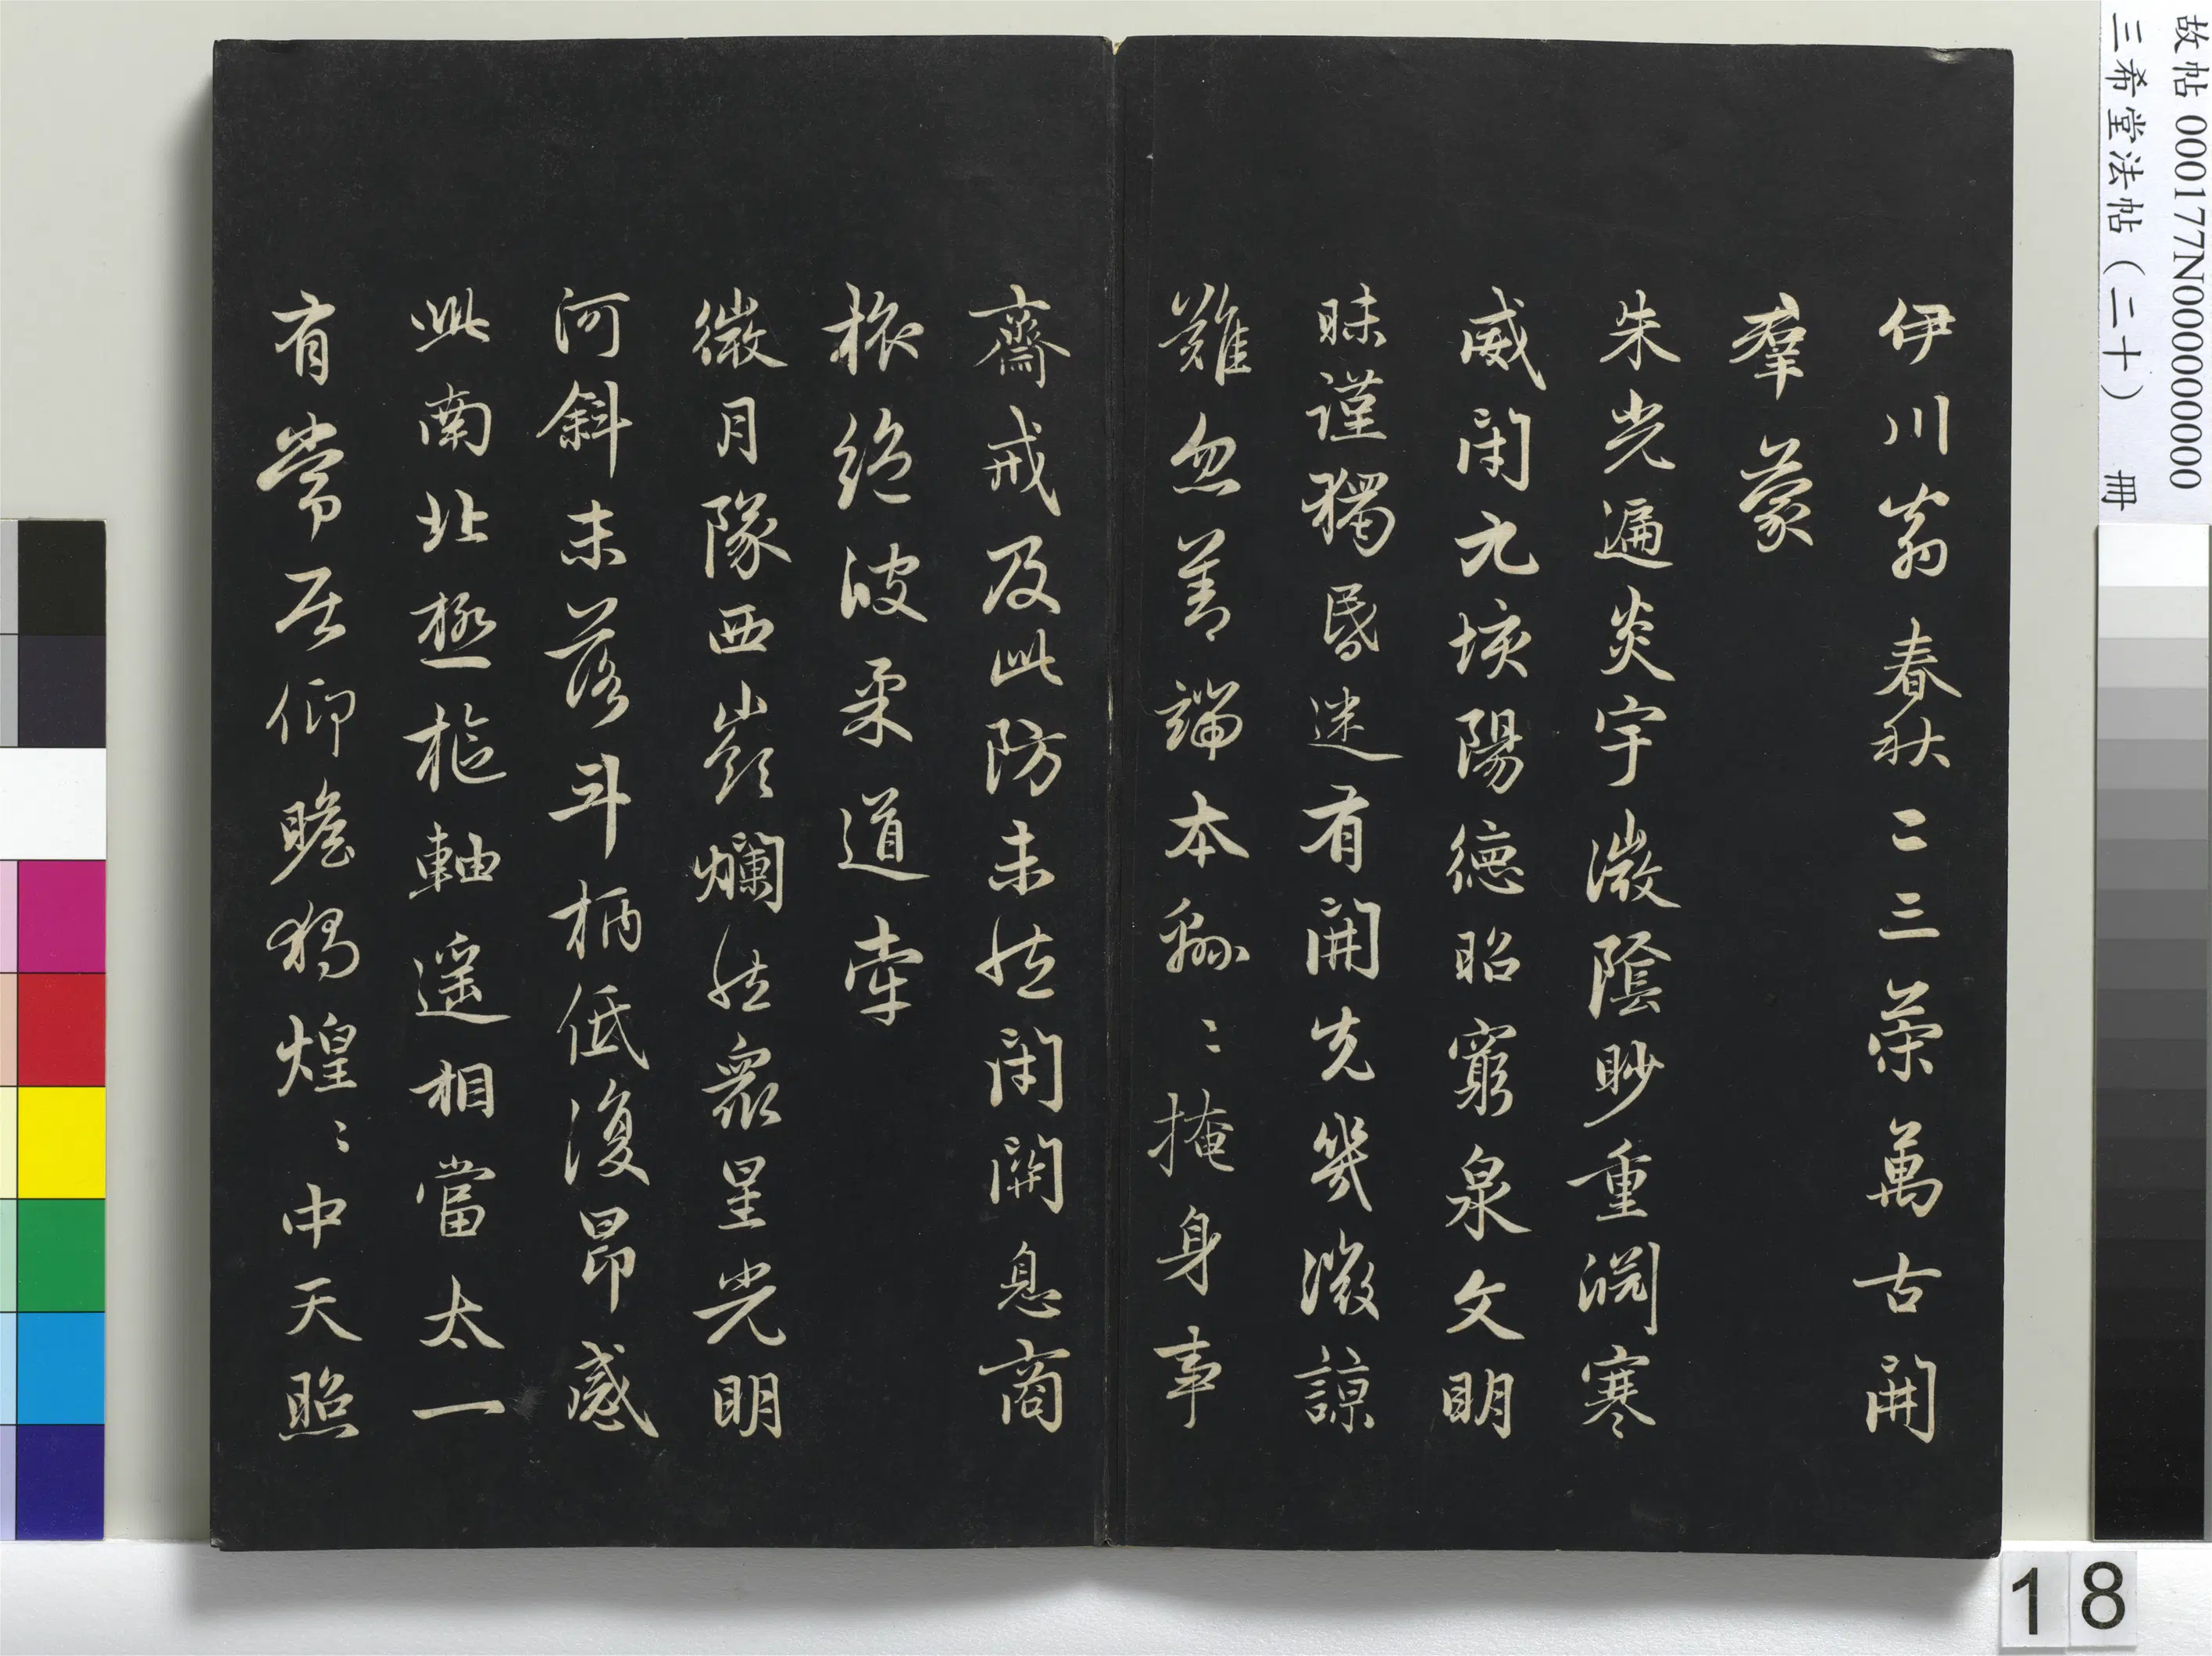 故帖 000177N000000000
三希堂法帖（二十） 冊
伊川翁春秋二三策萬古開
羣蒙
朱光遍炎宇微陰眇重淵寒
威閉九垓陽德昭窮泉文明
昧謹獨昏迷有開先幾微諒
難忽善端本綿〻掩身事
齋戒及此防未然閉關息商
旅絕彼柔道牽
微月隊西嶺爛然眾星光明
河斜未落斗柄低復昂感
此南北極樞軸遥相當太一
有常居仰瞻獨煌〻中天照
18